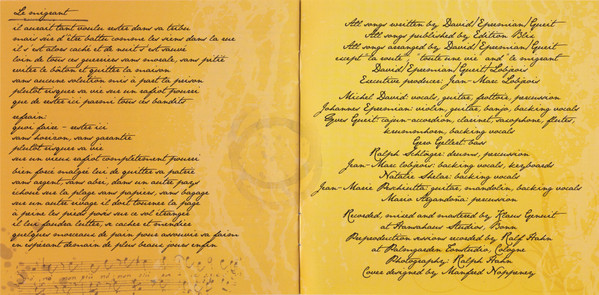 Le migrant
il aurait tant voulu rester dans sa tribu
mais sûr d'être battu comme les siens dans la rue
il s'est alors caché et de nuit s'est sauvé
loin de tous ces guerriers sans morale, sans pitié
éviter le bâton et quitter la maison
sans aucune solution mis à part la prison
plutôt risquer sa vie sur un rafiot pourri
que de rester ici parmi tous ces bandits
refrain:
quoi faire - rester ici
sans horizon, sans garantie
plutôt risquer sa vie
sur un vieux rafiot complètement pourri
bien forcé malgré lui de quitter sa patrie
sans argent, sans abri, dans un autre pays
échoué sur la plage sans papiers, sans bagage
sur un autre rivage il doit tourner la page
à peine les pieds posés sur ce sol étranger
il lui faudra lutter, se cacher et mendier
quelques morceaux de pain pour assouvir sa faim
en espérant demain de plus beaux jours enfin
All songs written by David/Epremian/Guert
All songs published by Edition Blue
All songs arranged by David/Epremian/Guert
except "la route", "toute une vie" and "le migrant"
David/Epremian/Guert/Lobjois
Executive producer: Jean-Marc Lobjois
Michel David: vocals, guitar, foottare, percussion
Johannes Epremian: violin, guitar, banjo, backing vocals
Yves Guert: cajun-accordion, clarinet, saxophone, flutes,
krummhorn, backing vocals
Gero Gellert: bass
Ralph Schläger: drums, percussion
Jean-Marc Lobjois: backing vocals, keyboards
Natalie Shelar: backing vocals
Jean-Marie Peschiutta: guitar, mandolin, backing vocals
Mario Argandoña: percussion
Recorded, mixed and mastered by Klaus Genuit
at Hansahaus Studios, Bonn
Preproduction sessions recorded by Ralf Hahn
at Palmgarden Tonstudio, Cologne
Photography: Ralph Hahn
Cover designed by Manfred Noppeney